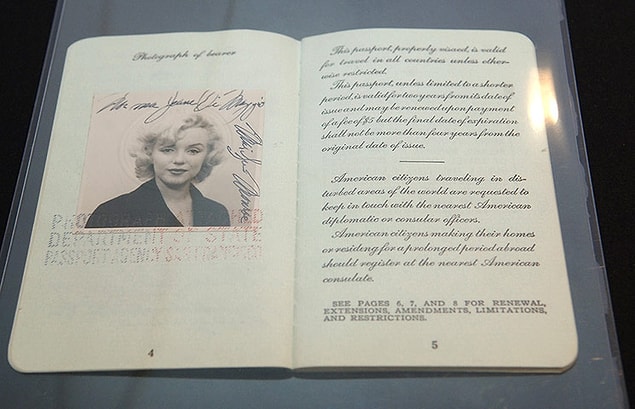 Photograph of bearer
Norma Jeane Di Maggio
Marilyn Monroe
DEPARTMENT OF STATE
PASSPORT AGENCY
4
This passport, properly visaed, is valid
for travel in all countries unless other-
wise restricted.
This passport, unless limited to a shorter
period, is valid for two years from its date of
issue and may be renewed upon payment
of a fee of $5 but the final date of expiration
shall not be more than four years from the
original date of issue.
American citizens traveling in dis-
turbed areas of the world are requested to
keep in touch with the nearest American
diplomatic or consular officers.
American citizens making their homes
or residing for a prolonged period abroad
should register at the nearest American
consulate.
SEE PAGES 6, 7, AND 8 FOR RENEWAL,
EXTENSIONS, AMENDMENTS, LIMITATIONS,
AND RESTRICTIONS.
5